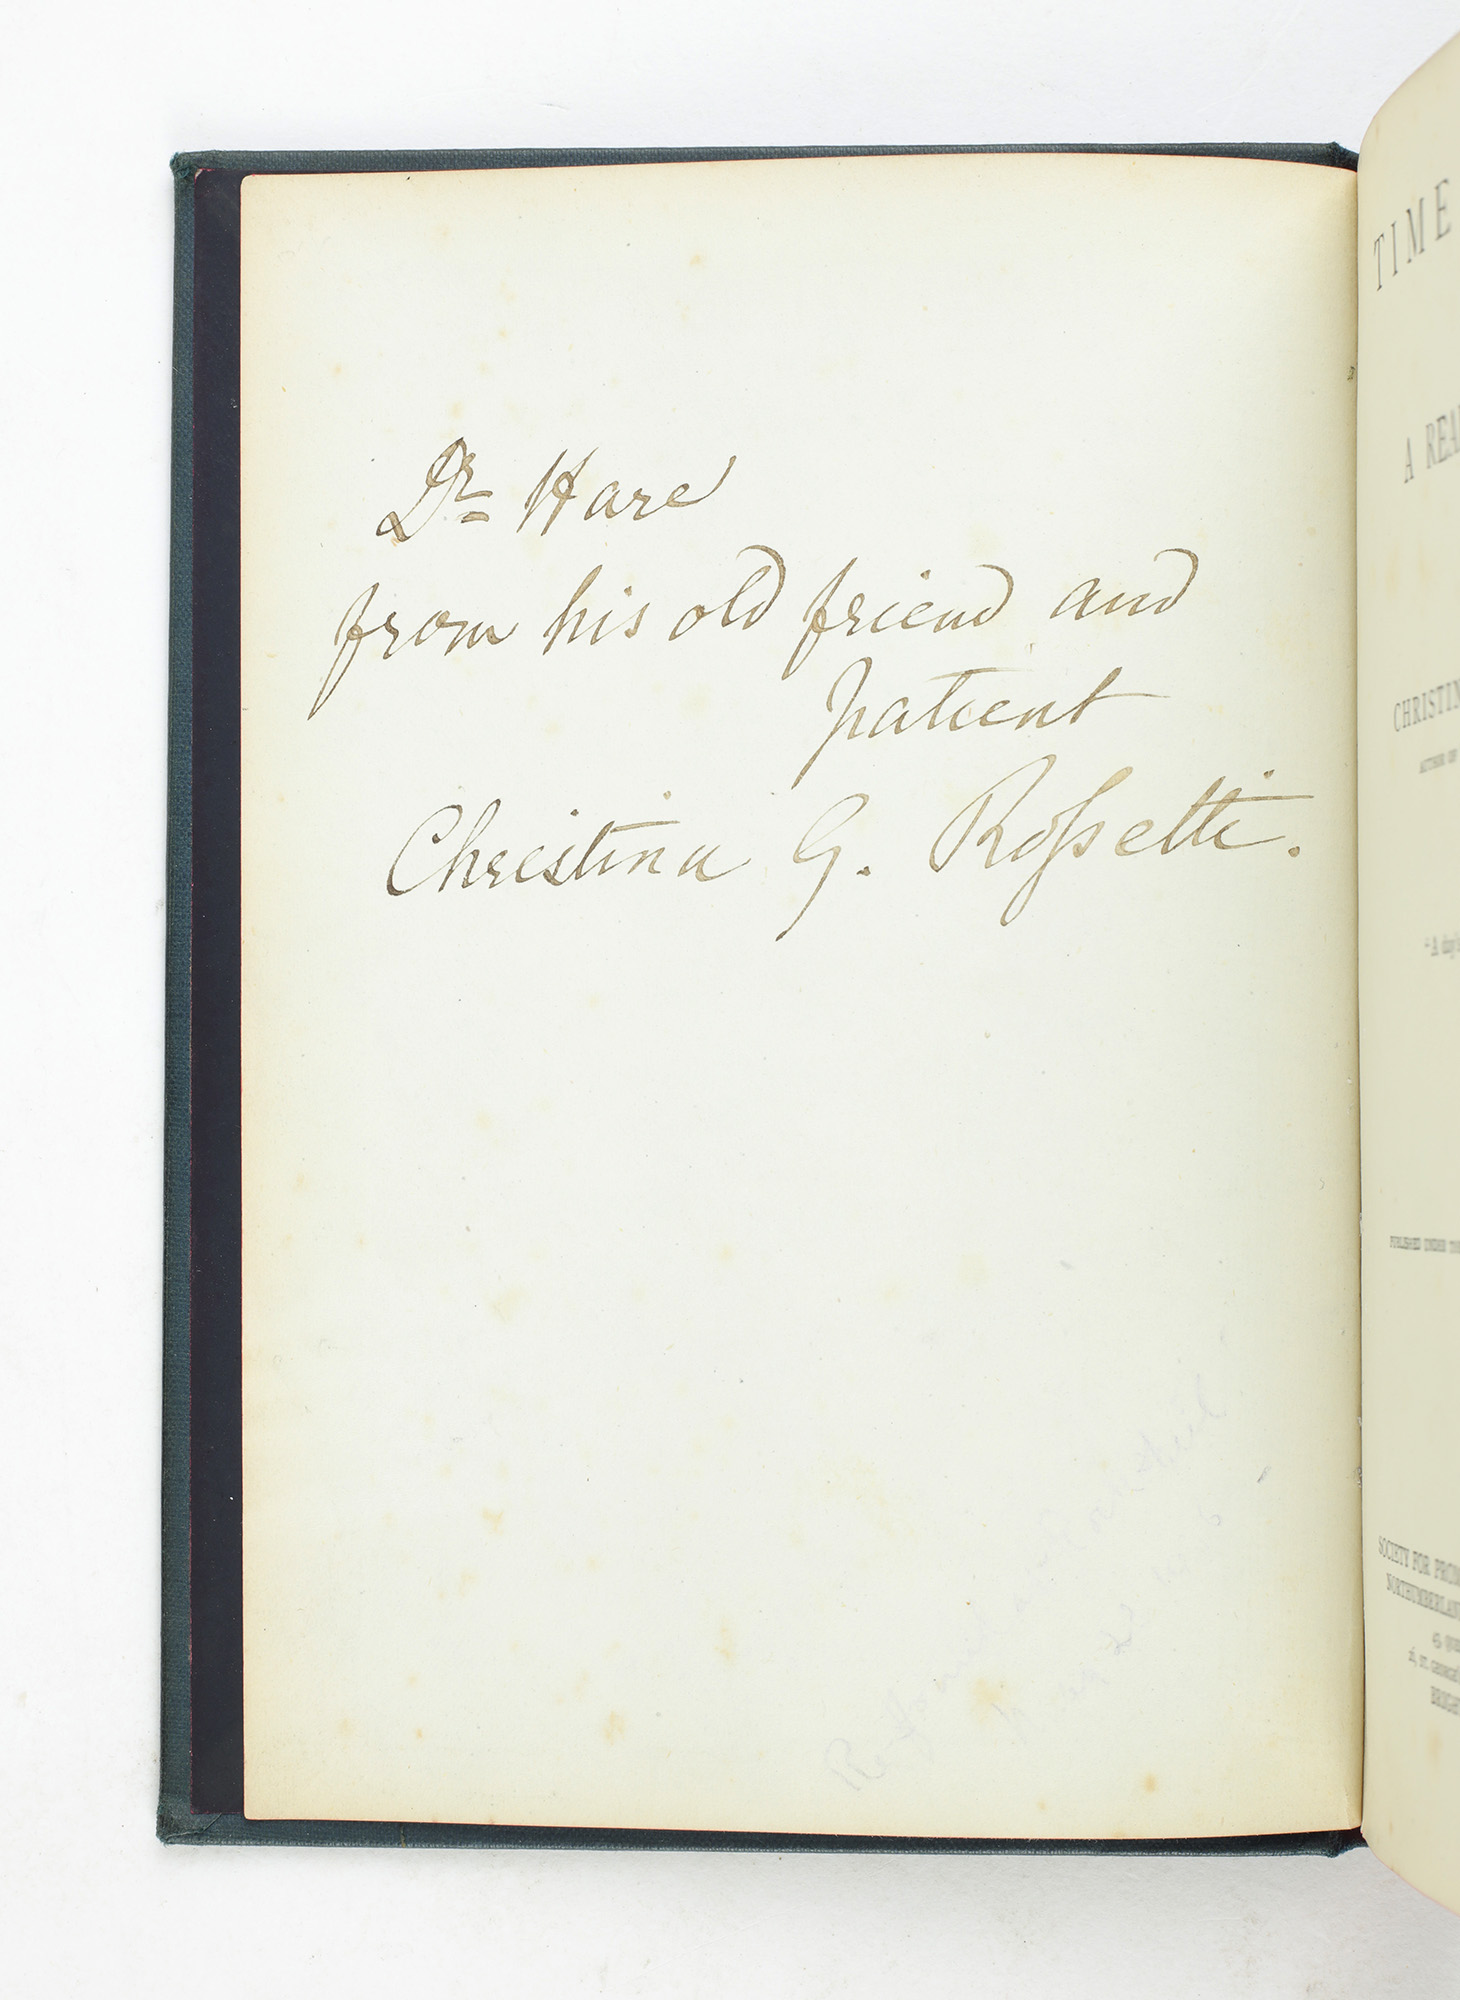 Dr Hare
from his old friend and
patient
Christina G. Roſsetti.
TIME
A REA
CHRISTIN
AUTHOR OF
"A day's
PUBLISHED UNDER THE
SOCIETY FOR PROM
NORTHUMBERLAN
BRIGHT